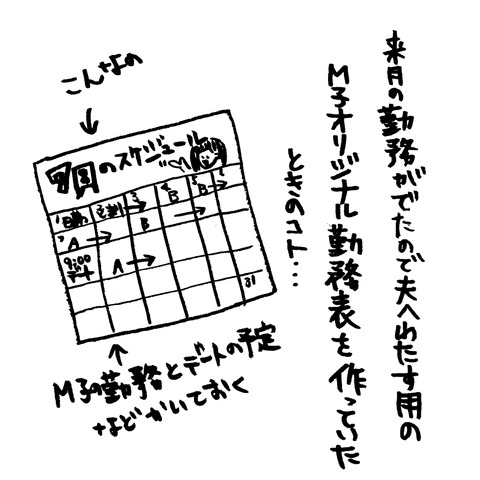 来月の勤務がでたので夫へわたす用の
M子オリジナル勤務表を作っていた
ときのコト…
こんなの
7月のスケジュール
1日勤 2 3 4 B 5 B→ 6
7 A → B →
9:00 デート A →
31
M子の勤務とデートの予定
などかいておく